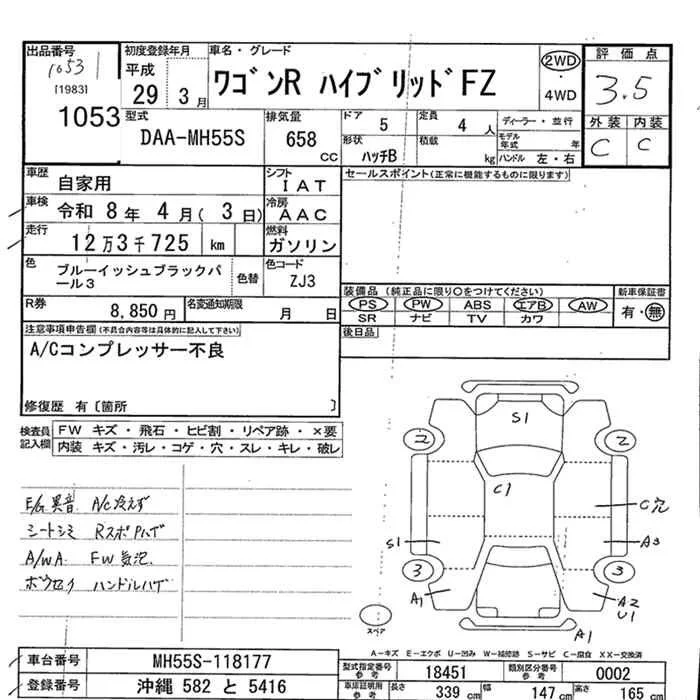 出品番号
1053
[1983]
1053
初度登録年月
平成
29 3月
車名・グレード
ワゴンR ハイブリッドFZ
2WD
・
4WD
評価点
3.5
外装 内装
C C
型式
DAA-MH55S
排気量
658
CC
ドア
5
定員
4 人
ディーラー・並行
形状
ハッチB
積載
kg
モデル年式 年
ハンドル 左・右
車歴
自家用
シフト
IAT
車検
令和 8年 4月( 3日)
冷房
AAC
走行
12万3千725 km
燃料
ガソリン
色
ブルーイッシュブラックパール3
色替
色コード
ZJ3
R券
8,850円
名変通知期限
月 日
セールスポイント(正常に機能するものに限ります)
装備品(純正品に限り○をつけてください)
新車保証書
PS PW ABS エアB AW
SR ナビ TV カワ
有・無
後日品
注意事項申告欄(不具合内容等は具体的に記入して下さい)
A/Cコンプレッサー不良
修復歴 有〔箇所 〕
検査員記入欄
FW キズ・飛石・ヒビ割・リペア跡・×要
内装 キズ・汚レ・コゲ・穴・スレ・キレ・破レ
E/G異音 A/C冷えず
シートシミ RスポPハゲ
A/WA FW気泡
ハンドルハゲ
S1
2
2
C1
C穴
S1
A3
3
3
A1
A2
U1
A1
スペア
A-キズ E-エクボ U-凹み W-補修跡 S-サビ C-腐食 XX-交換済
車台番号
MH55S-118177
登録番号
沖縄 582 と 5416
型式指定番号
参考
18451
類別区分番号
参考
0002
車庫証明用
参考
長さ
339 cm
幅
147 cm
高さ
165 cm